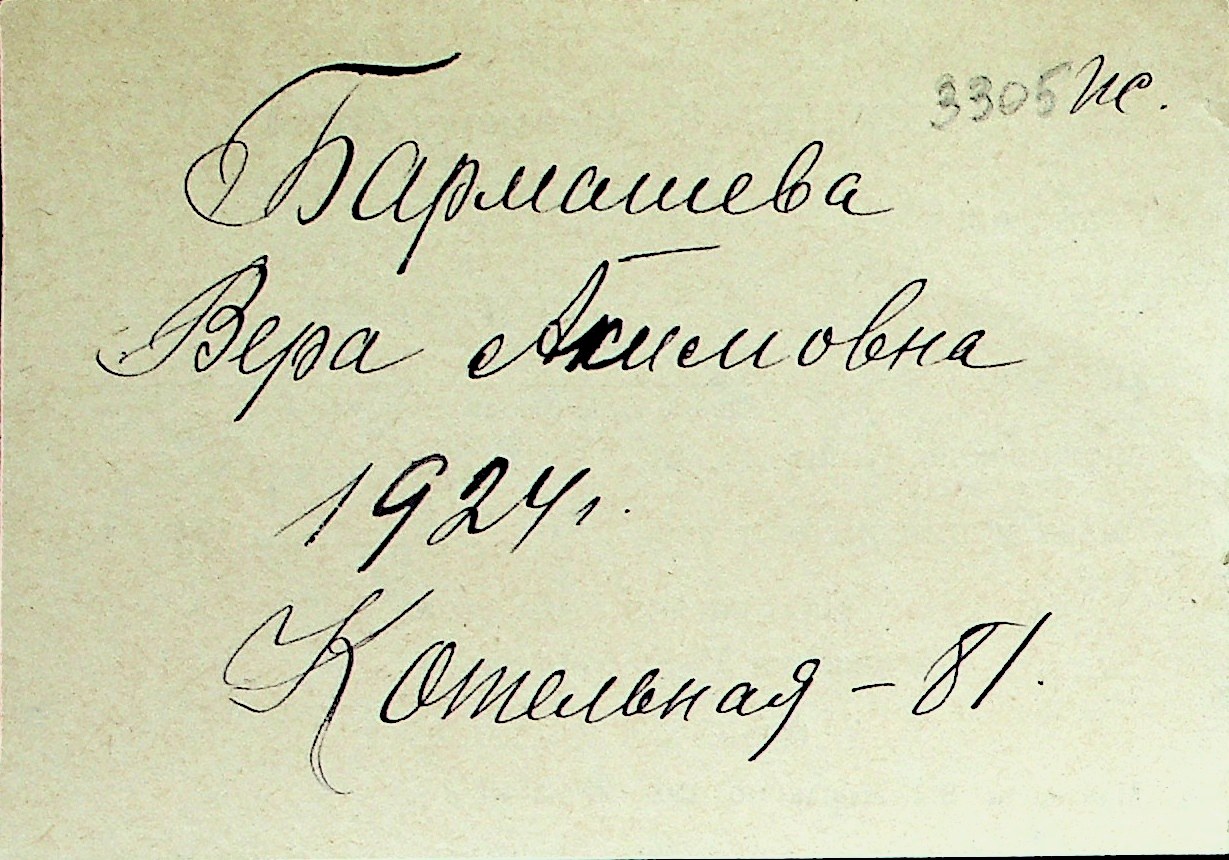 3305 пс.
Бармашева
Вера Акимовна
1924 г.
Котельная – 81.